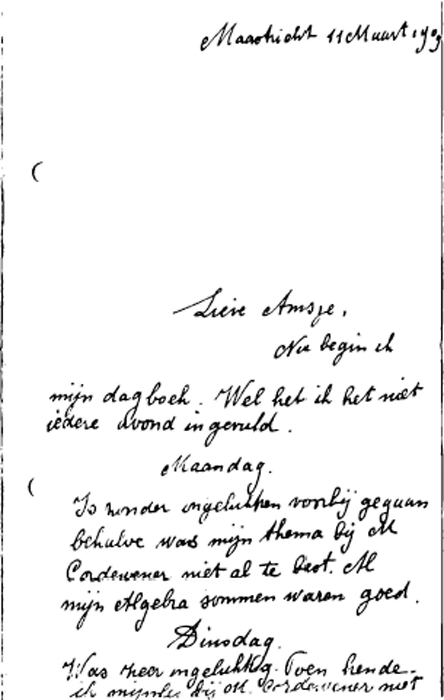 Maastricht 11 Maart 1909
Lieve Amsje,
Nu begin ik
mijn dagboek. Wel het ik het niet
iedere avond ingevuld.
Maandag.
Is zonder ongelukken voorbij gegaan
behalve was mijn thema bij M
Cordewener niet al te best. M
mijn Algebra sommen waren goed.
Dinsdag.
Was zeer ongelukkig. Toen kende
ik mijnles bij M. Cordewener niet